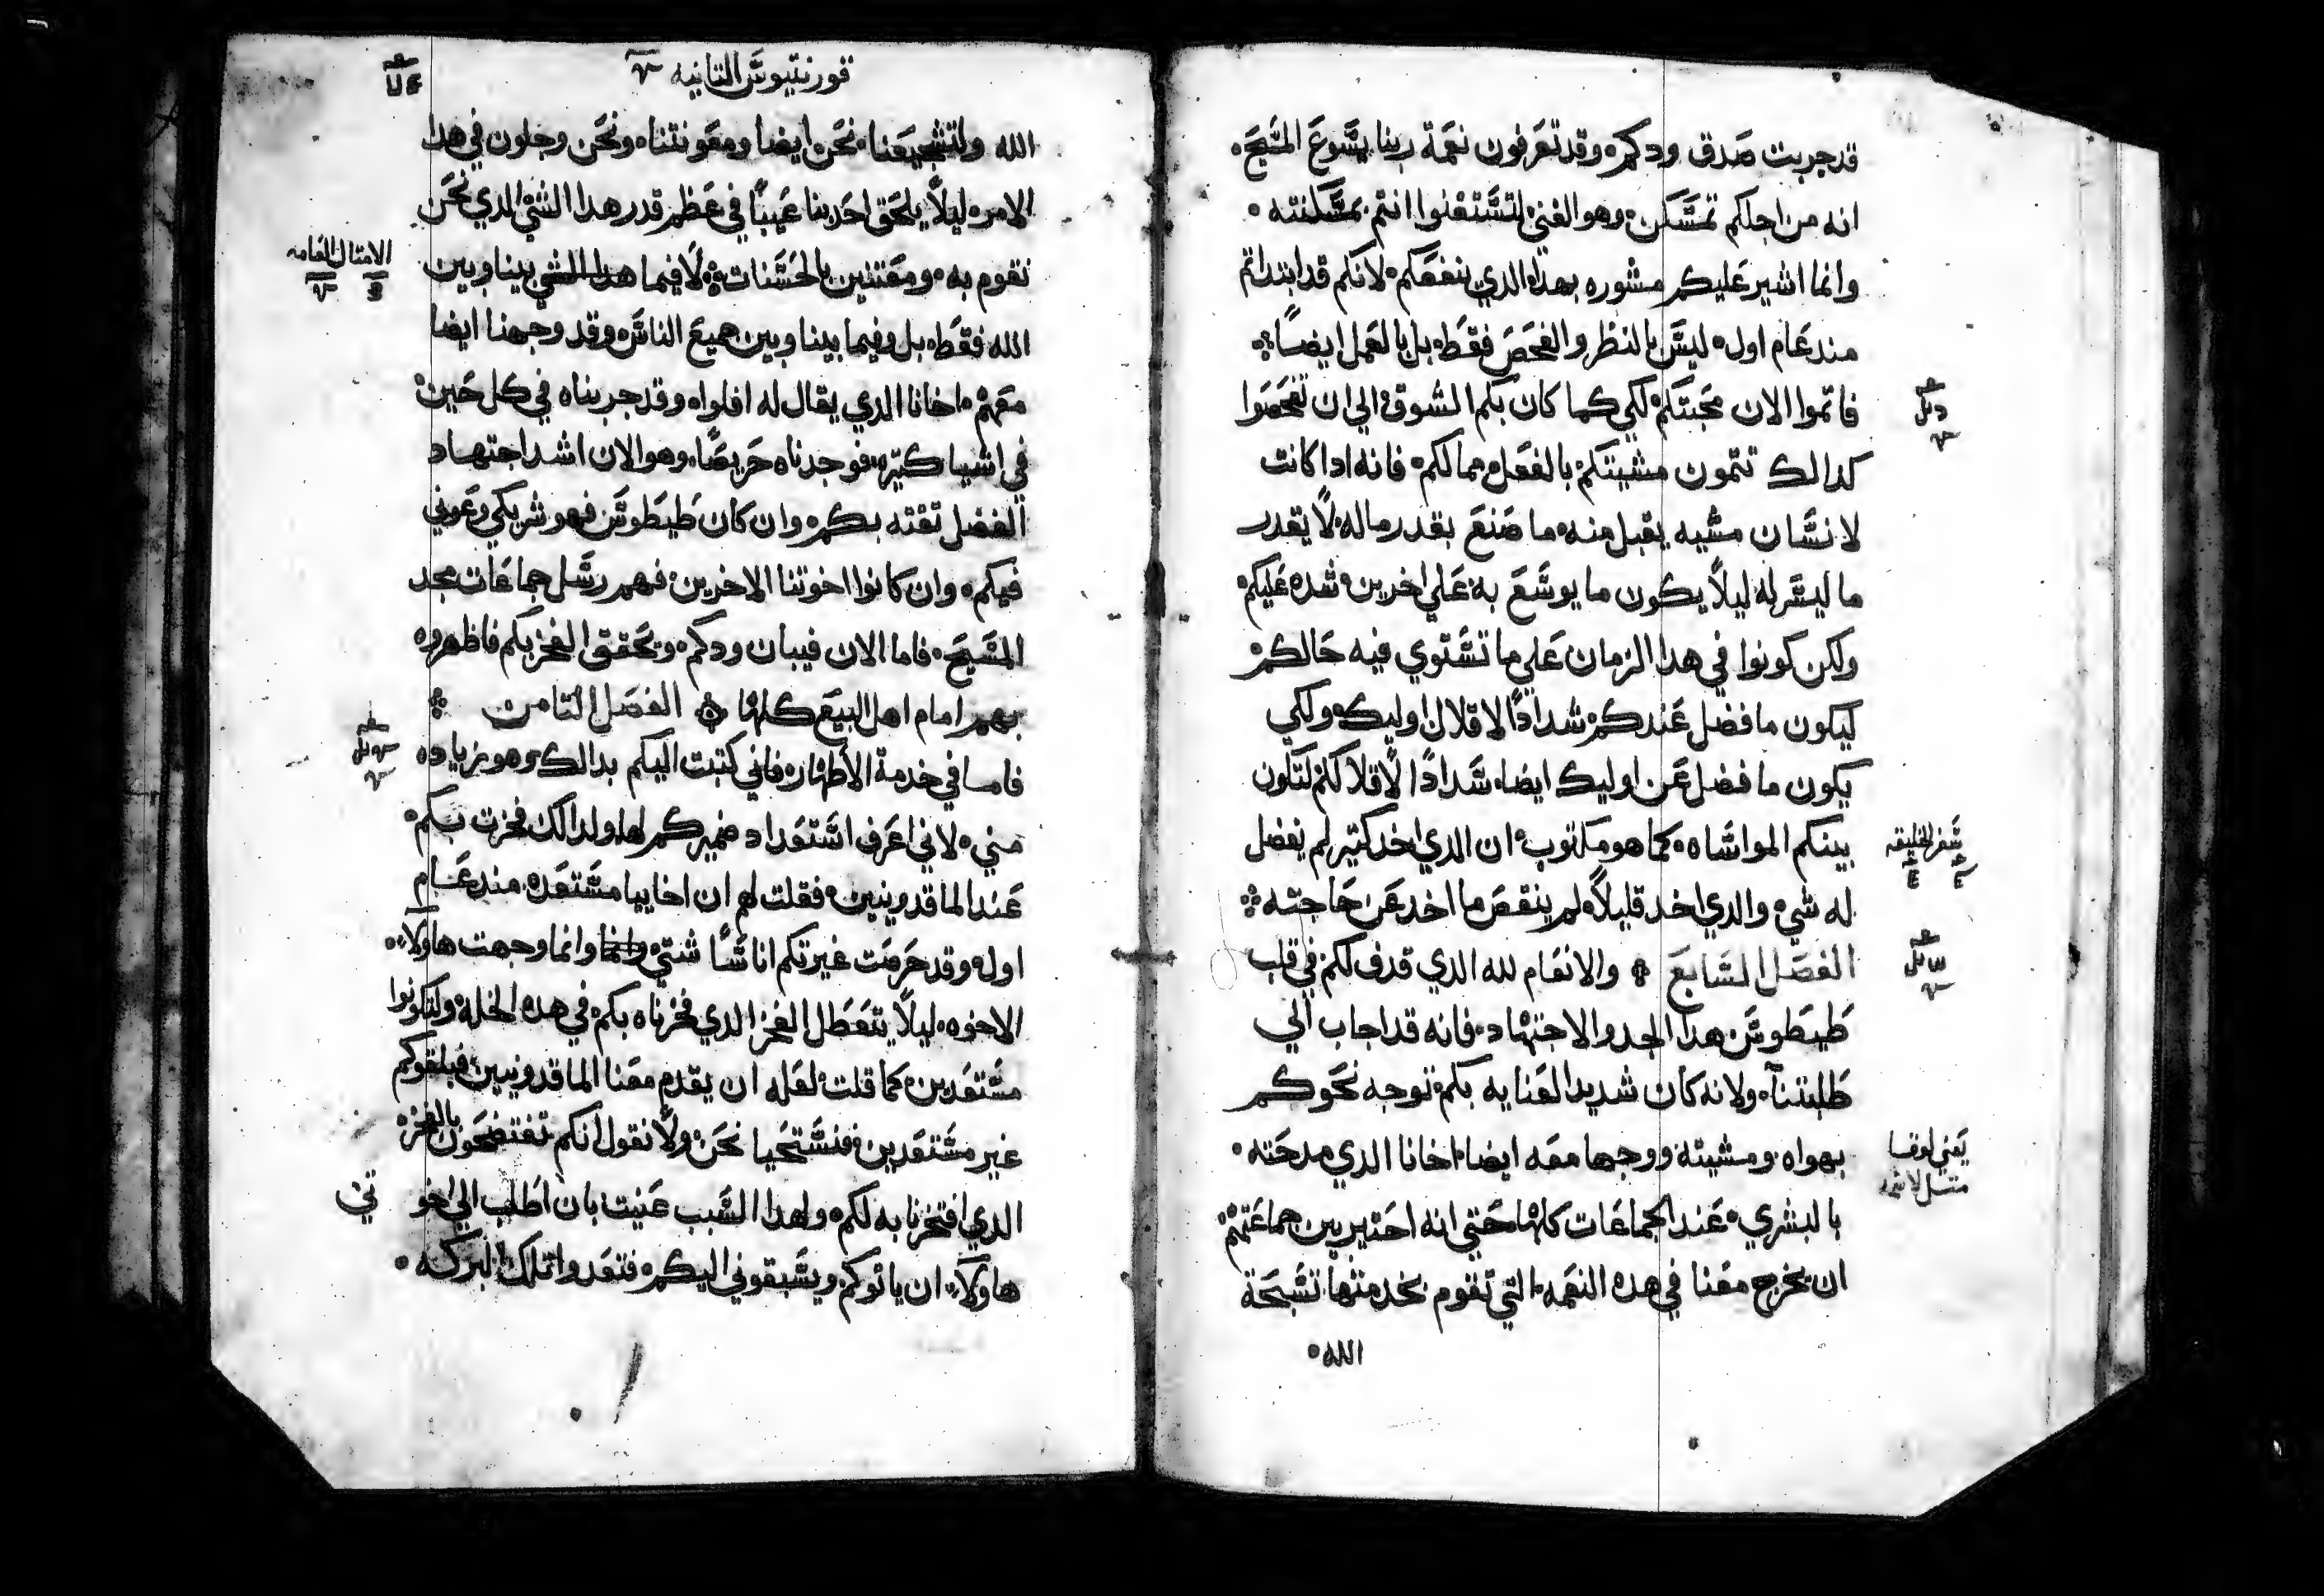 قد جربت صدق ودكم وقد تعرفون نعمة ربنا يسوع المسيح
انه من اجلكم تمسكن وهو الغني لتستغنوا انتم بمسكنته
وانما اشير عليكم مشوره بهدا الدي ينفعكم لانكم قد ابتداتم
مند عام اول ليس بالنظر والفحص فقط بل بالعمل ايضاً
فاتموا الان محبتكم لكي كما كان بكم الشوق الي ان تفحصوا
كدالك تتمون مشيتكم بالفعل مما لكم فانه ادا كانت
لانسان مشيه يقبل منه ما صنع بقدر ماله لا يقدر
ما ليس له ليلاً يكون ما يوسع به علي اخرين شده عليكم
ولكن كونوا في هدا الزمان علي ما تستوي فيه حالكم
ليكون ما فضل عندكم سداداً لاقلال اوليك ولكي
يكون ما فضل عن اوليك ايضا سداداً لاقلالكم لتكون
بينكم المواساه كما هو مكتوب ان الدي اخد كتير لم يفضل
له شي والدي اخد قليلاً لم ينقص ما اخد عن حاجته
الفصل السابع والانعام لله الدي قدف لكم في قلب
طيطوس هدا الجد والاجتهاد فانه قد اجاب الي
طلبتنا ولانه كان شديد العنايه بكم توجه نحوكم
بهواه ومشيته ووجهنا معه ايضا اخانا الدي مدحته
بالبشري عند الجماعات كلها حتي انه اختير بين جماعتهم
ان يخرج معنا في هده النعمه التي تقوم بخدمتها تسبحة
الله
سفر الخليقه
يعني لوقا
قورنتيوس التانيه
الله ولتشجيعنا نحن ايضا ومعونتنا ونحن وجلون في هدا
الامر ليلاً يلحق احد بنا عيباً في عظم قدر هدا الشي الدي نحن
نقوم به ومعتنين بالحسنات لا فيما هدا الشي بيننا وبين
الله فقط بل وفيما بيننا وبين جميع الناس وقد وجهنا ايضا
معهم اخانا الدي يقال له افلوا وقد جربناه في كل حين
في اشيا كتيره فوجدناه حريصاً وهو الان اشد اجتهاد
لفضل تقته بكم وان كان طيطوس فهو شريكي وعوني
فيكم وان كانوا اخوتنا الاخرين فهم رسل جماعات مجد
المسيح فاما الان فيبان ودكم وتحقق الفخر بكم فاظهروه
بهم امام اهل البيع كلها الفصل التامن
فاما في خدمة الاطهار فاني كتبت اليكم بدالك وهو زياده
مني لاني اعرف استعداد ضميركم لها ولدالك فخرت بكم
عند الماقدونيين فقلت لهم ان اخاييا مستعده مند عام
اول وقد حرصت غيرتكم اناساً شتي وانما وانما وجهت هاولاء
الاخوه ليلاً يتعطل الفخر الدي فخرناه بكم في هده الخله ولتكونوا
مستعدين كما قلت لعله ان يقدم معنا الماقدونيين فيلقوكم
غير مستعدين فنستحيا نحن ولا نقول انكم تفتضحون بالفخر
الدي افتخرنا به لكم ولهدا السبب عنيت بان اطلب الي اخوتي
هاولاء ان ياتوكم ويسبقوني اليكم فتعدوا تلك البركه
الامتال العامه